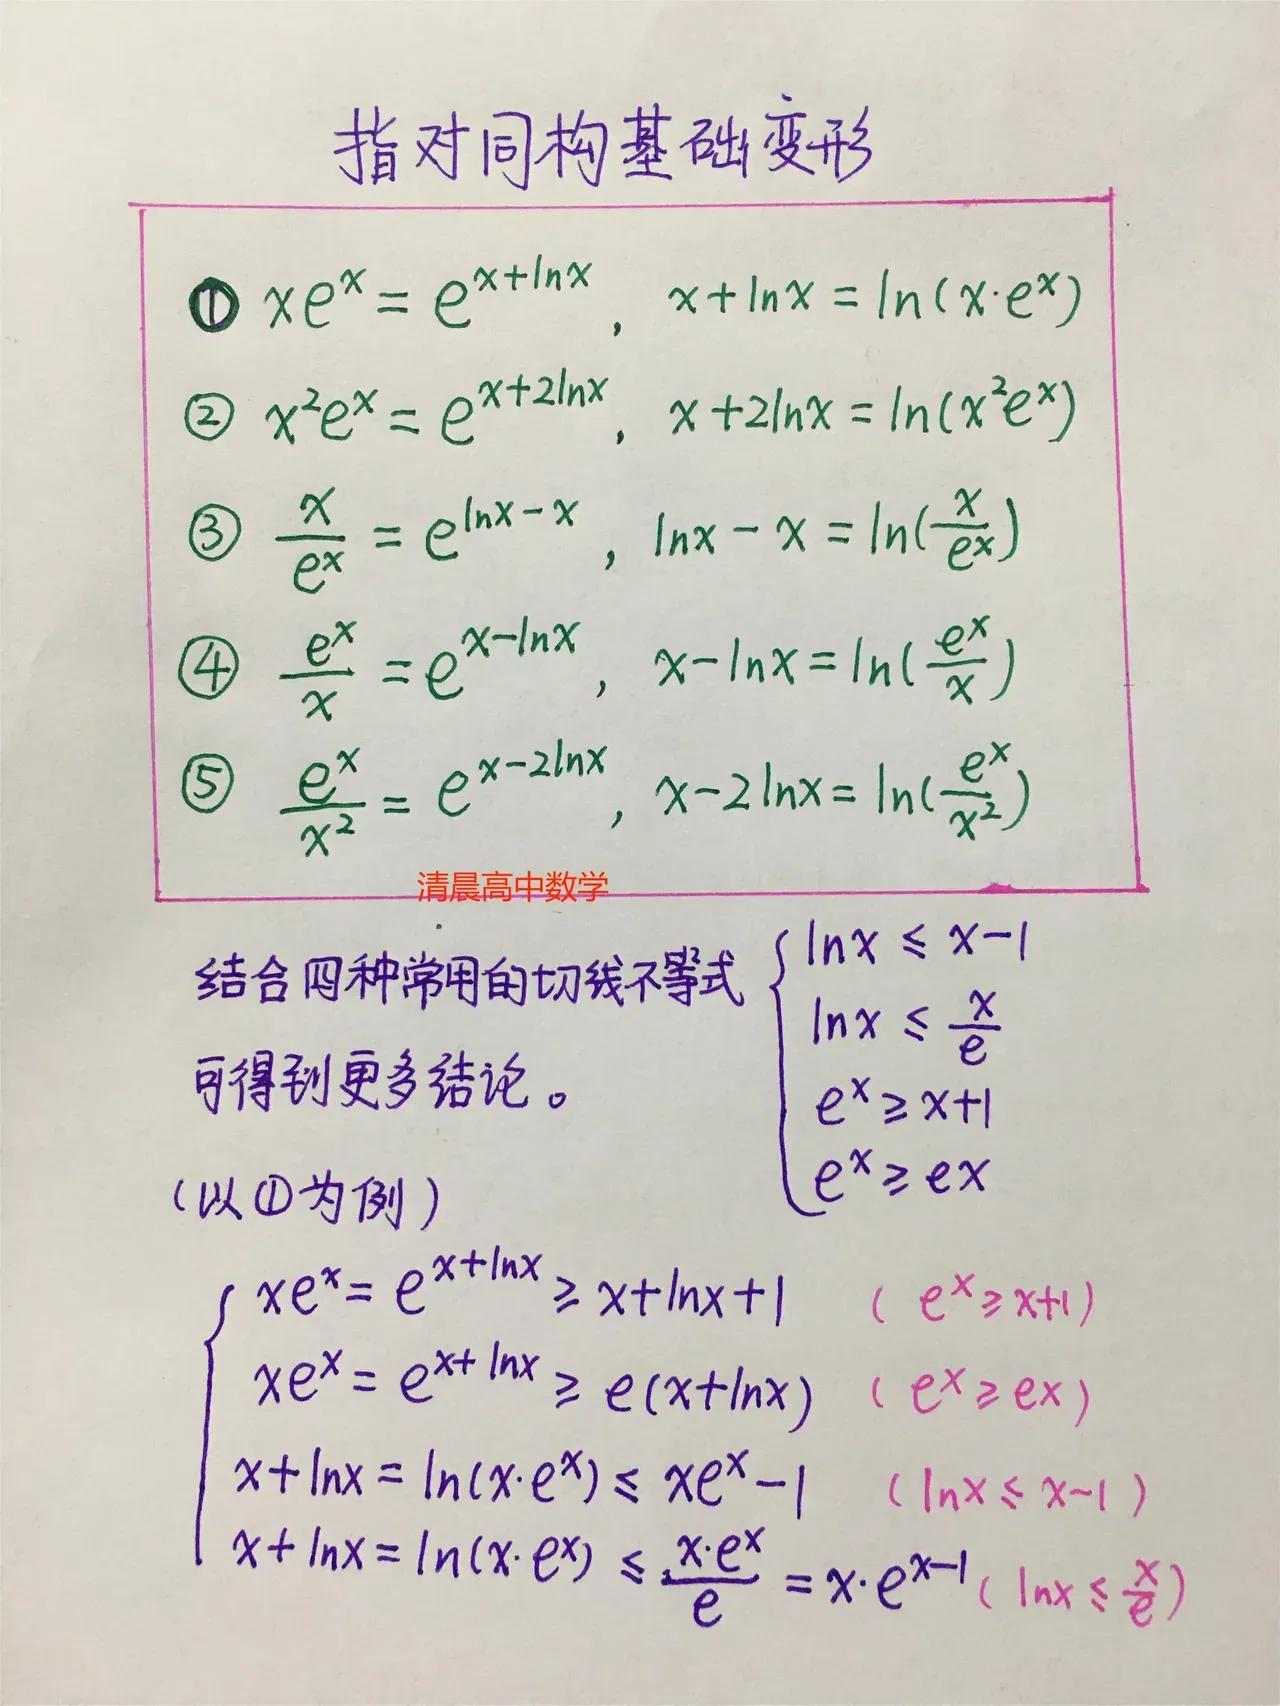 指对同构基础变形
① xeˣ = e^(x+lnx), x+lnx = ln(x·eˣ)
② x²eˣ = e^(x+2lnx), x+2lnx = ln(x²eˣ)
③ x/eˣ = e^(lnx-x), lnx-x = ln(x/eˣ)
④ eˣ/x = e^(x-lnx), x-lnx = ln(eˣ/x)
⑤ eˣ/x² = e^(x-2lnx), x-2lnx = ln(eˣ/x²)
清晨高中数学
结合四种常用的切线不等式
可得到更多结论。
lnx ≤ x-1
lnx ≤ x/e
eˣ ≥ x+1
eˣ ≥ ex
(以①为例)
xeˣ = e^(x+lnx) ≥ x+lnx+1 (eˣ ≥ x+1)
xeˣ = e^(x+lnx) ≥ e(x+lnx) (eˣ ≥ ex)
x+lnx = ln(x·eˣ) ≤ xeˣ-1 (lnx ≤ x-1)
x+lnx = ln(x·eˣ) ≤ x·eˣ/e = x·e^(x-1) (lnx ≤ x/e)